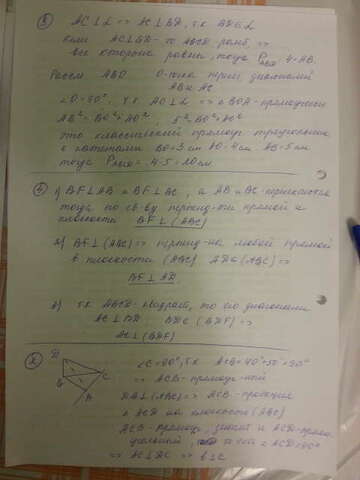 ③ AC⊥α => AC⊥BD, т.к. BD∈α
если AC⊥BD - то ABCD-ромб, =>
все стороны равны, тогда P = 4·AB.
Рассм ABO O-точка перес. диагоналей
BD и AC
∠O=90°, т.к AO⊥α => △BOA-прямоугольн
AB²=BO²+AO², 5²=3²+AO²
это классический прямоуг треугольник
с катетами BO=3см AO=4см AB=5см
тогда P = 4·5=20см
④ 1) BF⊥AB и BF⊥BC, а AB и BC
тогда по св-ву перпенд-ти прямой и
плоскости BF⊥(ABC)
2) BF⊥(ABC) => перпенд-на любой прямой
в плоскости (ABC) AD∈(ABC) =>
BF⊥AD.
3) т.к. ABCD-квадрат, то его диагонали
AC⊥BD, BD∈(BDF) =>
AC⊥(BDF)
②
D
B
C
A
∠C=90°, т.к ACB=40°+50°=90°
=> ACB-прямоуг-ный
DB⊥(ABC) => ACB-проекция
△ACD на плоскость (ABC)
ACB-прямоуг, значит и ACD-прямо
угольный, то есть ∠ACD=90°
=> AC⊥DC =>